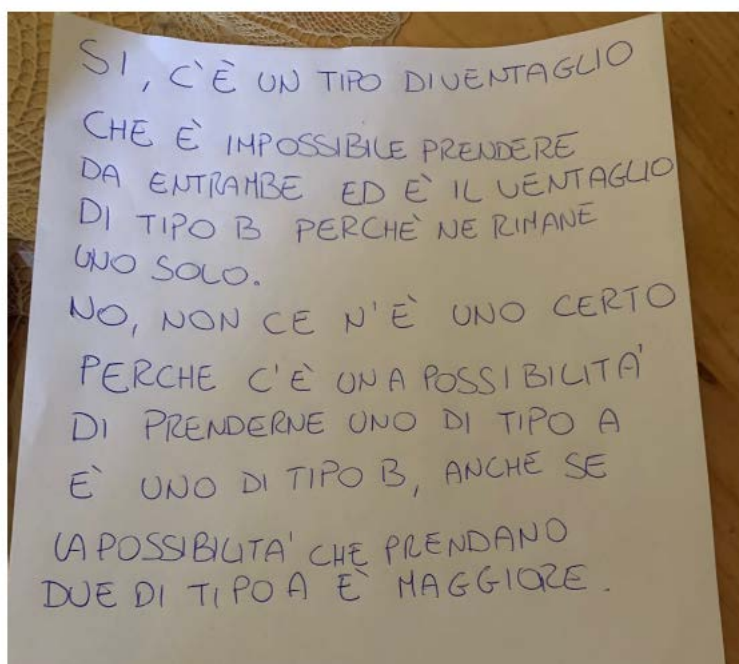 SI, C'È UN TIPO DI VENTAGLIO
CHE È IMPOSSIBILE PRENDERE
DA ENTRAMBE ED È IL VENTAGLIO
DI TIPO B PERCHÈ NE RIMANE
UNO SOLO.
NO, NON CE N'È UNO CERTO
PERCHE C'È UNA POSSIBILITA'
DI PRENDERNE UNO DI TIPO A
E' UNO DI TIPO B, ANCHE SE
LA POSSIBILITA' CHE PRENDANO
DUE DI TIPO A È MAGGIORE.